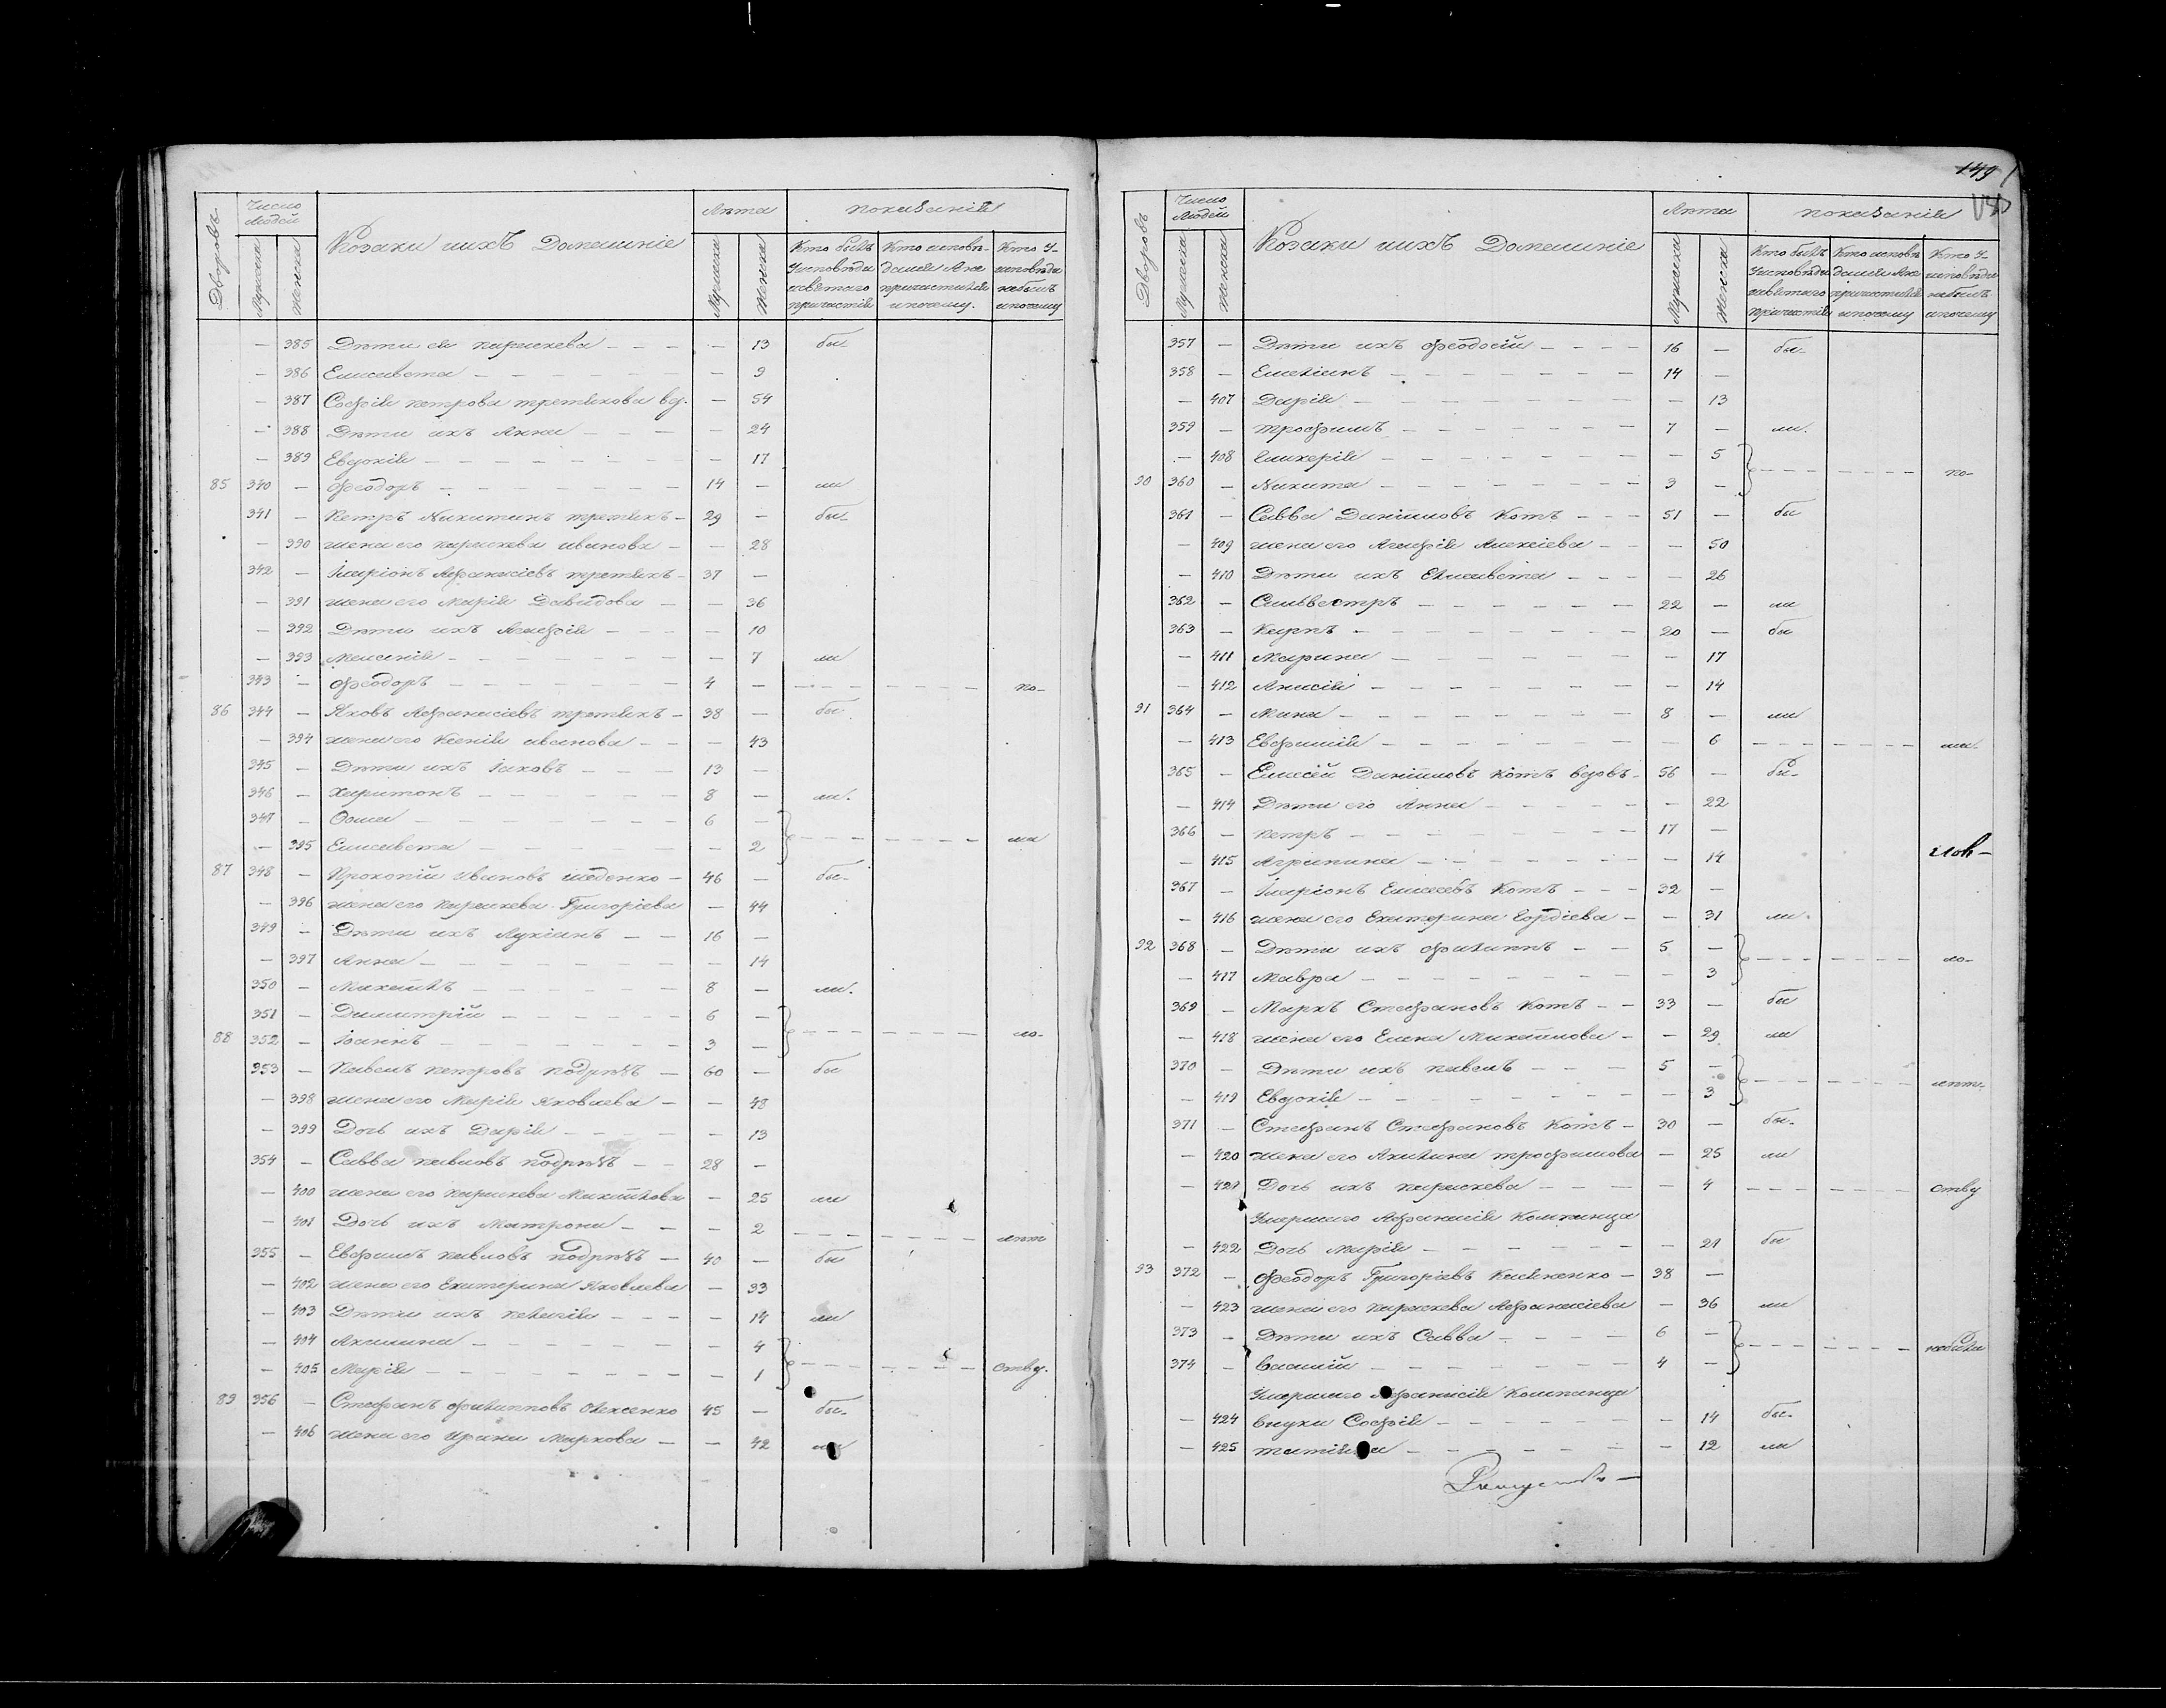 Дворовъ
Число Людей
Мужеска
Женска
Козаки иихъ Домашніе
Лѣта
Мужеска
Женска
показаніи
Кто былъ
Кто исповѣ-
Кто У-
— 385 Дѣти ея параскева — — 13 бы-
— 386 Елисавета — — 9
— 387 Софія петрова третякова вд. — 54
— 388 Дѣти ихъ Анна — — 24
— 389 Евдокія — — 17
85 340 — Феодоръ — 14 — ли
341 — Петръ Никитинъ третякъ — 29 — бы-
— 390 жена его параскева иванова — — 28
342 — Іларіонъ Афанасіевъ третякъ — 37 —
— 391 жена его Марія Давидова — — 36
— 392 Дѣти ихъ Агафія — — 10
— 393 Меланія — — 7 ли
343 — Феодоръ — 4 — по-
86 344 — Яковъ Афанасіевъ третякъ — 38 — бы
— 394 жена его Ксенія иванова — — 43
345 — Дѣти ихъ Іаковъ — 13 —
346 — Харитонъ — 8 — ли.
347 — Ѳома — 6 —
— 395 Елисавета — — 2 ма
87 348 — Прокопій Ивановъ шеденко — 46 — бы-
— 396 жена его параскева Григоріева — 44
349 — Дѣти ихъ Лукіанъ — 16 —
— 397 Анна — — 14
350 — Михаилъ — 8 — ли.
351 — Димитрій — 6 —
88 352 — Іоаннъ — 3 — ло-
353 — Павелъ петровъ подрѣзъ — 60 — бы
— 398 жена его Марія Яковлева — — 48
— 399 Дочь ихъ Дарія — — 13
354 — Савва павловъ подрѣзъ — 28 —
— 400 жена его параскева Михайлова — 25 ли
— 401 Дочь ихъ Матрона — — 2 лѣт
355 — Евфимъ павловъ подрѣзъ — 40 — бы
— 402 жена его Екатерина Яковлева — 33
— 403 Дѣти ихъ пелагія — — 14 ли
— 404 Акилина — — 4
— 405 Марія — — 1 ству.
89 356 — Стефанъ филипповъ Алексенко 45 — бы-
— 406 жена его Ирина Маркова — — 42 ли
149
Дворовъ
Число Людей
Мужеска
Женска
Козаки иихъ Домашніе
Лѣта
Мужеска
Женска
показаніи
Кто былъ
Кто исповѣ
Кто У-
357 — Дѣти ихъ Феодосій — 16 — бы-
358 — Емеліанъ — 14 —
— 407 Дарія — — 13
359 — трофимъ — 7 — ли.
— 408 Гликерія — — 5
90 360 — Никита — 3 — по-
361 — Савва Даніиловъ Котъ — 51 — бы
— 409 жена его Агафія Алексіева — — 50
— 410 Дѣти ихъ Елисавета — — 26
362 — Сильвестръ — 22 — ли
363 — Карпъ — 20 — бы
— 411 Марина — — 17
— 412 Анисія — — 14
91 364 — Мина — 8 — ли
— 413 Евфимія — — 6 ма.
365 — Елисей Даніиловъ Котъ вдовъ — 56 — бы-
— 414 Дѣти его Анна — — 22
366 — петръ — 17 —
— 415 Агрипина — — 14
367 — Іларіонъ Елисеевъ Котъ — 32 —
— 416 жена его Екатерина Гордіева — — 31 ли.
92 368 — Дѣти ихъ филиппъ — 5 —
— 417 Мавра — — 3 ло-
369 — Маркъ Стефановъ Котъ — 33 — бы
— 418 жена его Елена Михайлова — — 29 ли
370 — Дѣти ихъ павелъ — 5 —
— 419 Евдокія — — 3 лѣт.
371 — Стефанъ Стефановъ Котъ — 30 — бы-
— 420 жена его Акилина трофимова — 25 ли
— 421 Дочь ихъ параскева — — 4 ству
Умершаго Афанасія Компанца
— 422 Дочь Марія — — 21 бы
93 372 — Феодоръ Григоріевъ Калиненко — 38 —
— 423 жена его параскева Афанасіева — 36 ли
373 — Дѣти ихъ Савва — 6 —
374 — Василій — 4 — небыли
Умершаго Афанасія Компанца
— 424 внуки Софія — — 14 бы-
— 425 татіана — — 12 ли